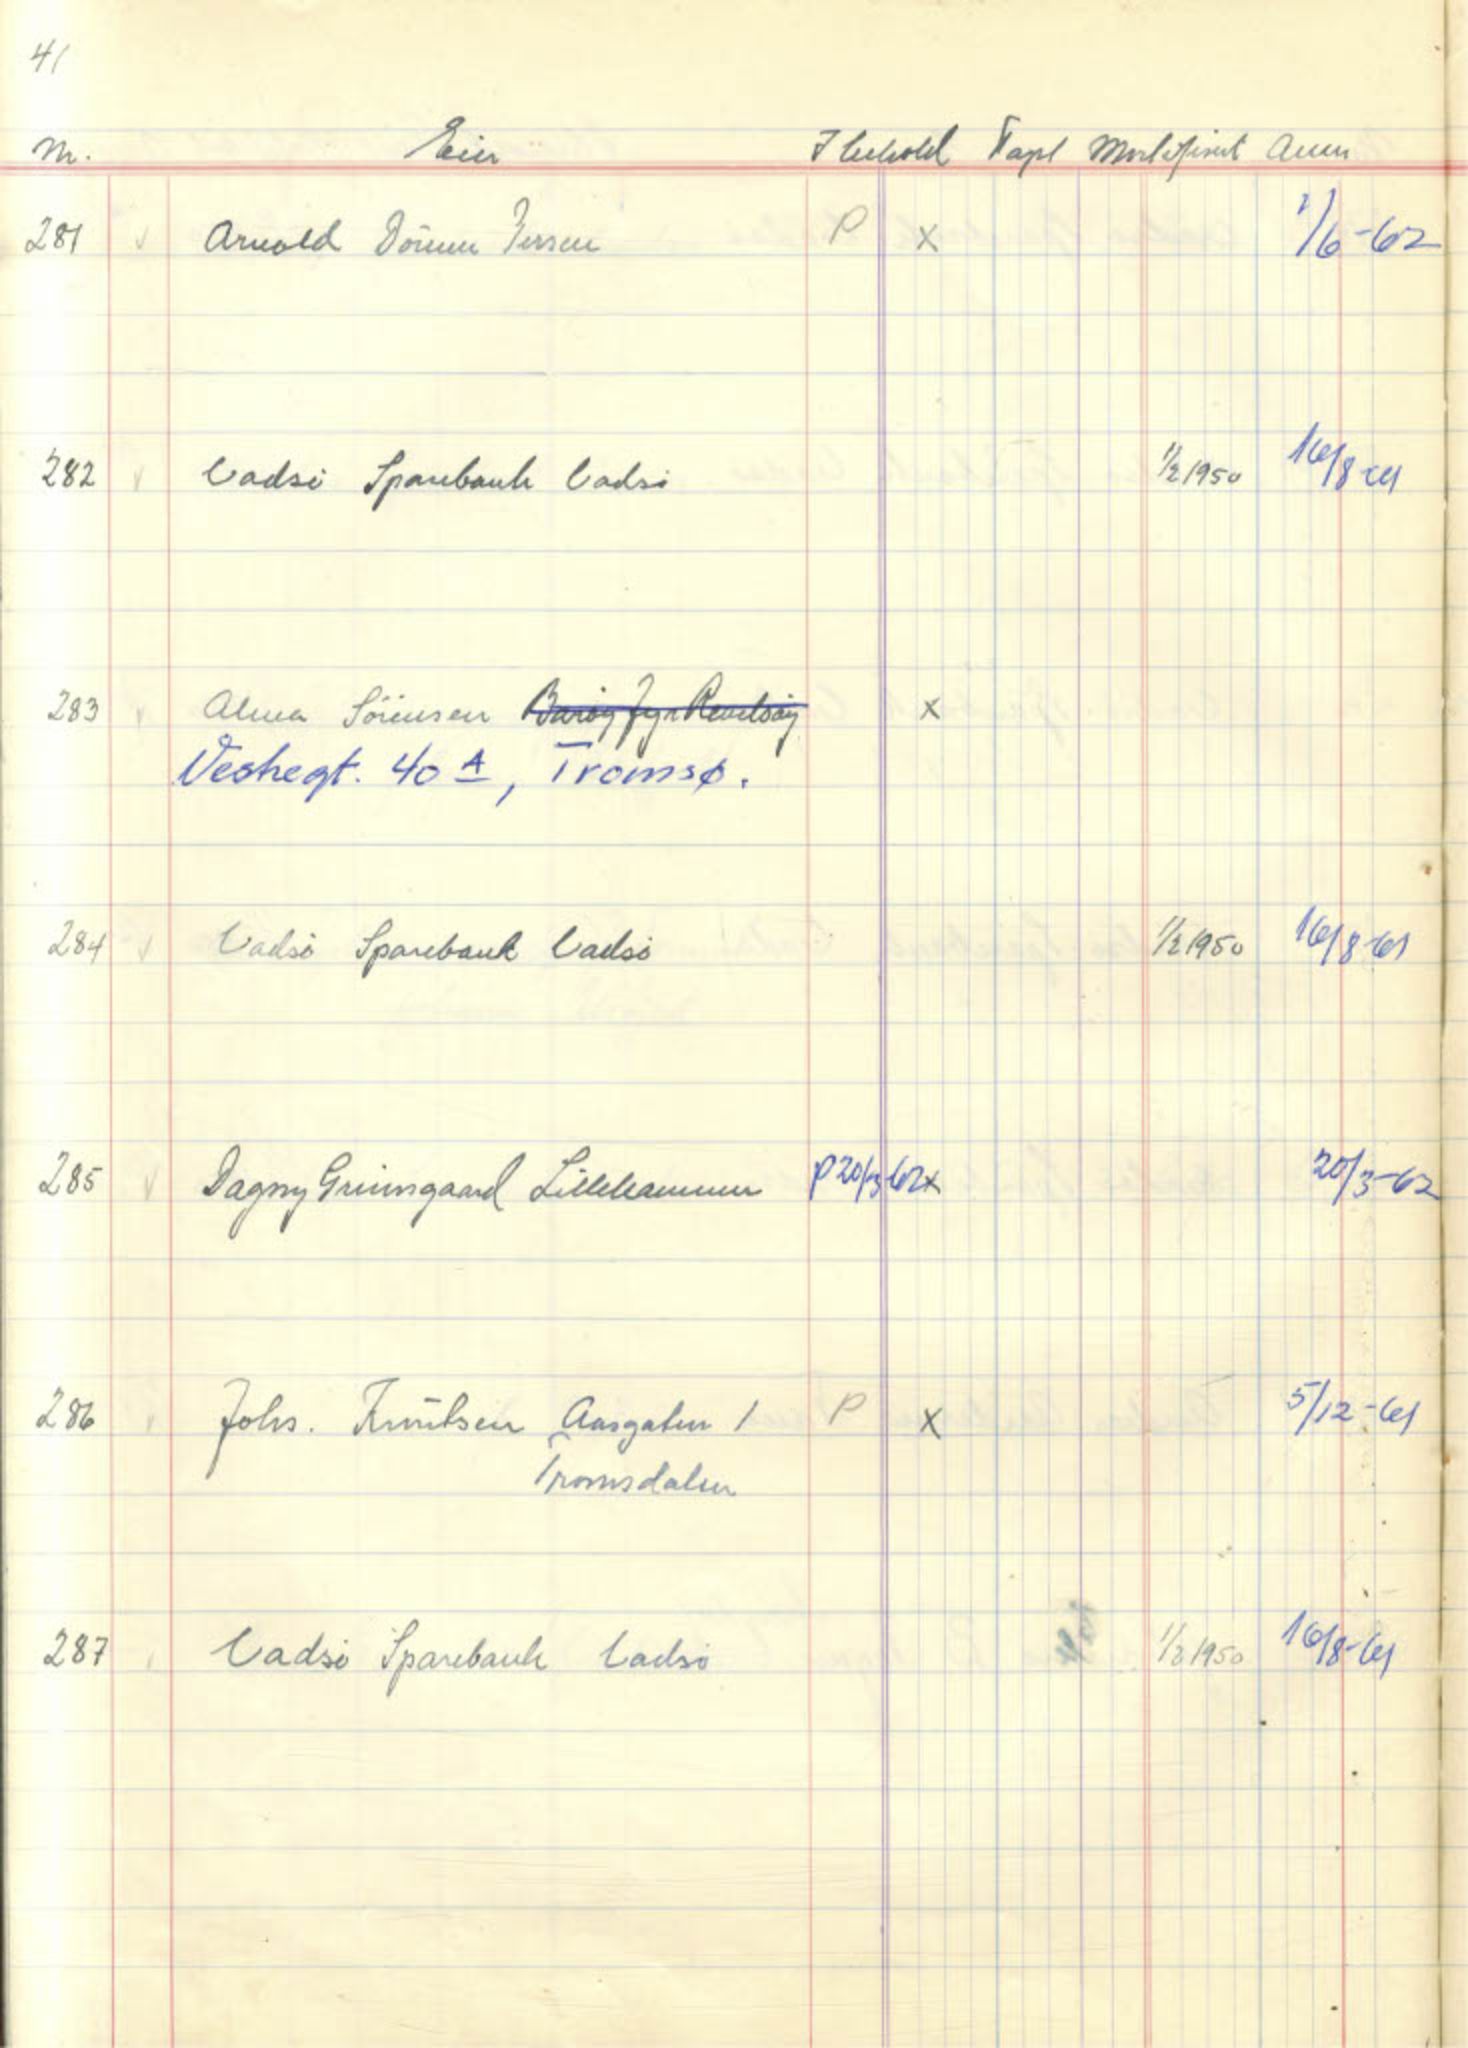 41
Nr. Eier I behold Tapt Mortifisert Anm
281 Arnold P x 1/6-62
282 Vadsö Sparebank Vadsö 1/2 1950 16/8-61
283 Alma Sörensen x
Vestregt. 40 A, Tromsø.
284 Vadsö Sparebank Vadsö 1/2 1950 16/8-61
285 Dagny Grimsgaard Lillehammer P 20/3 62 x 20/3-62
286 Johs. Knutsen Aasgaten 1 P x 5/12-61
Tromsdalen
287 Vadsö Sparebank Vadsö 1/2 1950 16/8-61